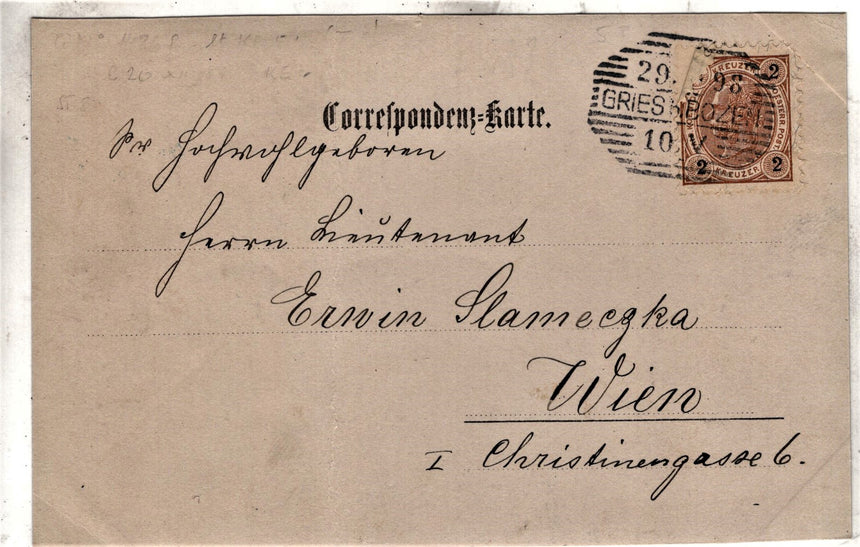 Correspondenz=Karte.
Sr Hochwohlgeboren
Herrn Lieutenant
Erwin Slameczka
Wien
I Christinengasse 6.
29. 98
GRIES B. BOZEN
10
KREUZER
2
2 2
KREUZER